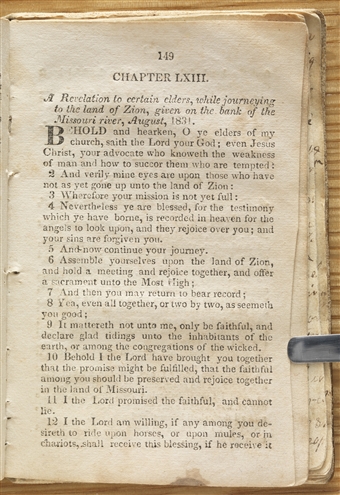 149
CHAPTER LXIII.
A Revelation to certain elders, while journeying
to the land of Zion, given on the bank of the
Missouri river, August, 1831.
BEHOLD and hearken, O ye elders of my
church, saith the Lord your God; even Jesus
Christ, your advocate who knoweth the weakness
of man and how to succor them who are tempted:
2 And verily mine eyes are upon those who have
not as yet gone up unto the land of Zion:
3 Wherefore your mission is not yet full:
4 Nevertheless ye are blessed, for the testimony
which ye have borne, is recorded in heaven for the
angels to look upon, and they rejoice over you; and
your sins are forgiven you.
5 And now continue your journey.
6 Assemble yourselves upon the land of Zion,
and hold a meeting and rejoice together, and offer
a sacrament unto the Most High;
7 And then you may return to bear record;
8 Yea, even all together, or two by two, as seemeth
you good;
9 It mattereth not unto me, only be faithful, and
declare glad tidings unto the inhabitants of the
earth, or among the congregations of the wicked.
10 Behold I the Lord have brought you together
that the promise might be fulfilled, that the faithful
among you should be preserved and rejoice together
in the land of Missouri.
11 I the Lord promised the faithful, and cannot
lie.
12 I the Lord am willing, if any among you de-
sireth to ride upon horses, or upon mules, or in
chariots, shall receive this blessing, if he receive it